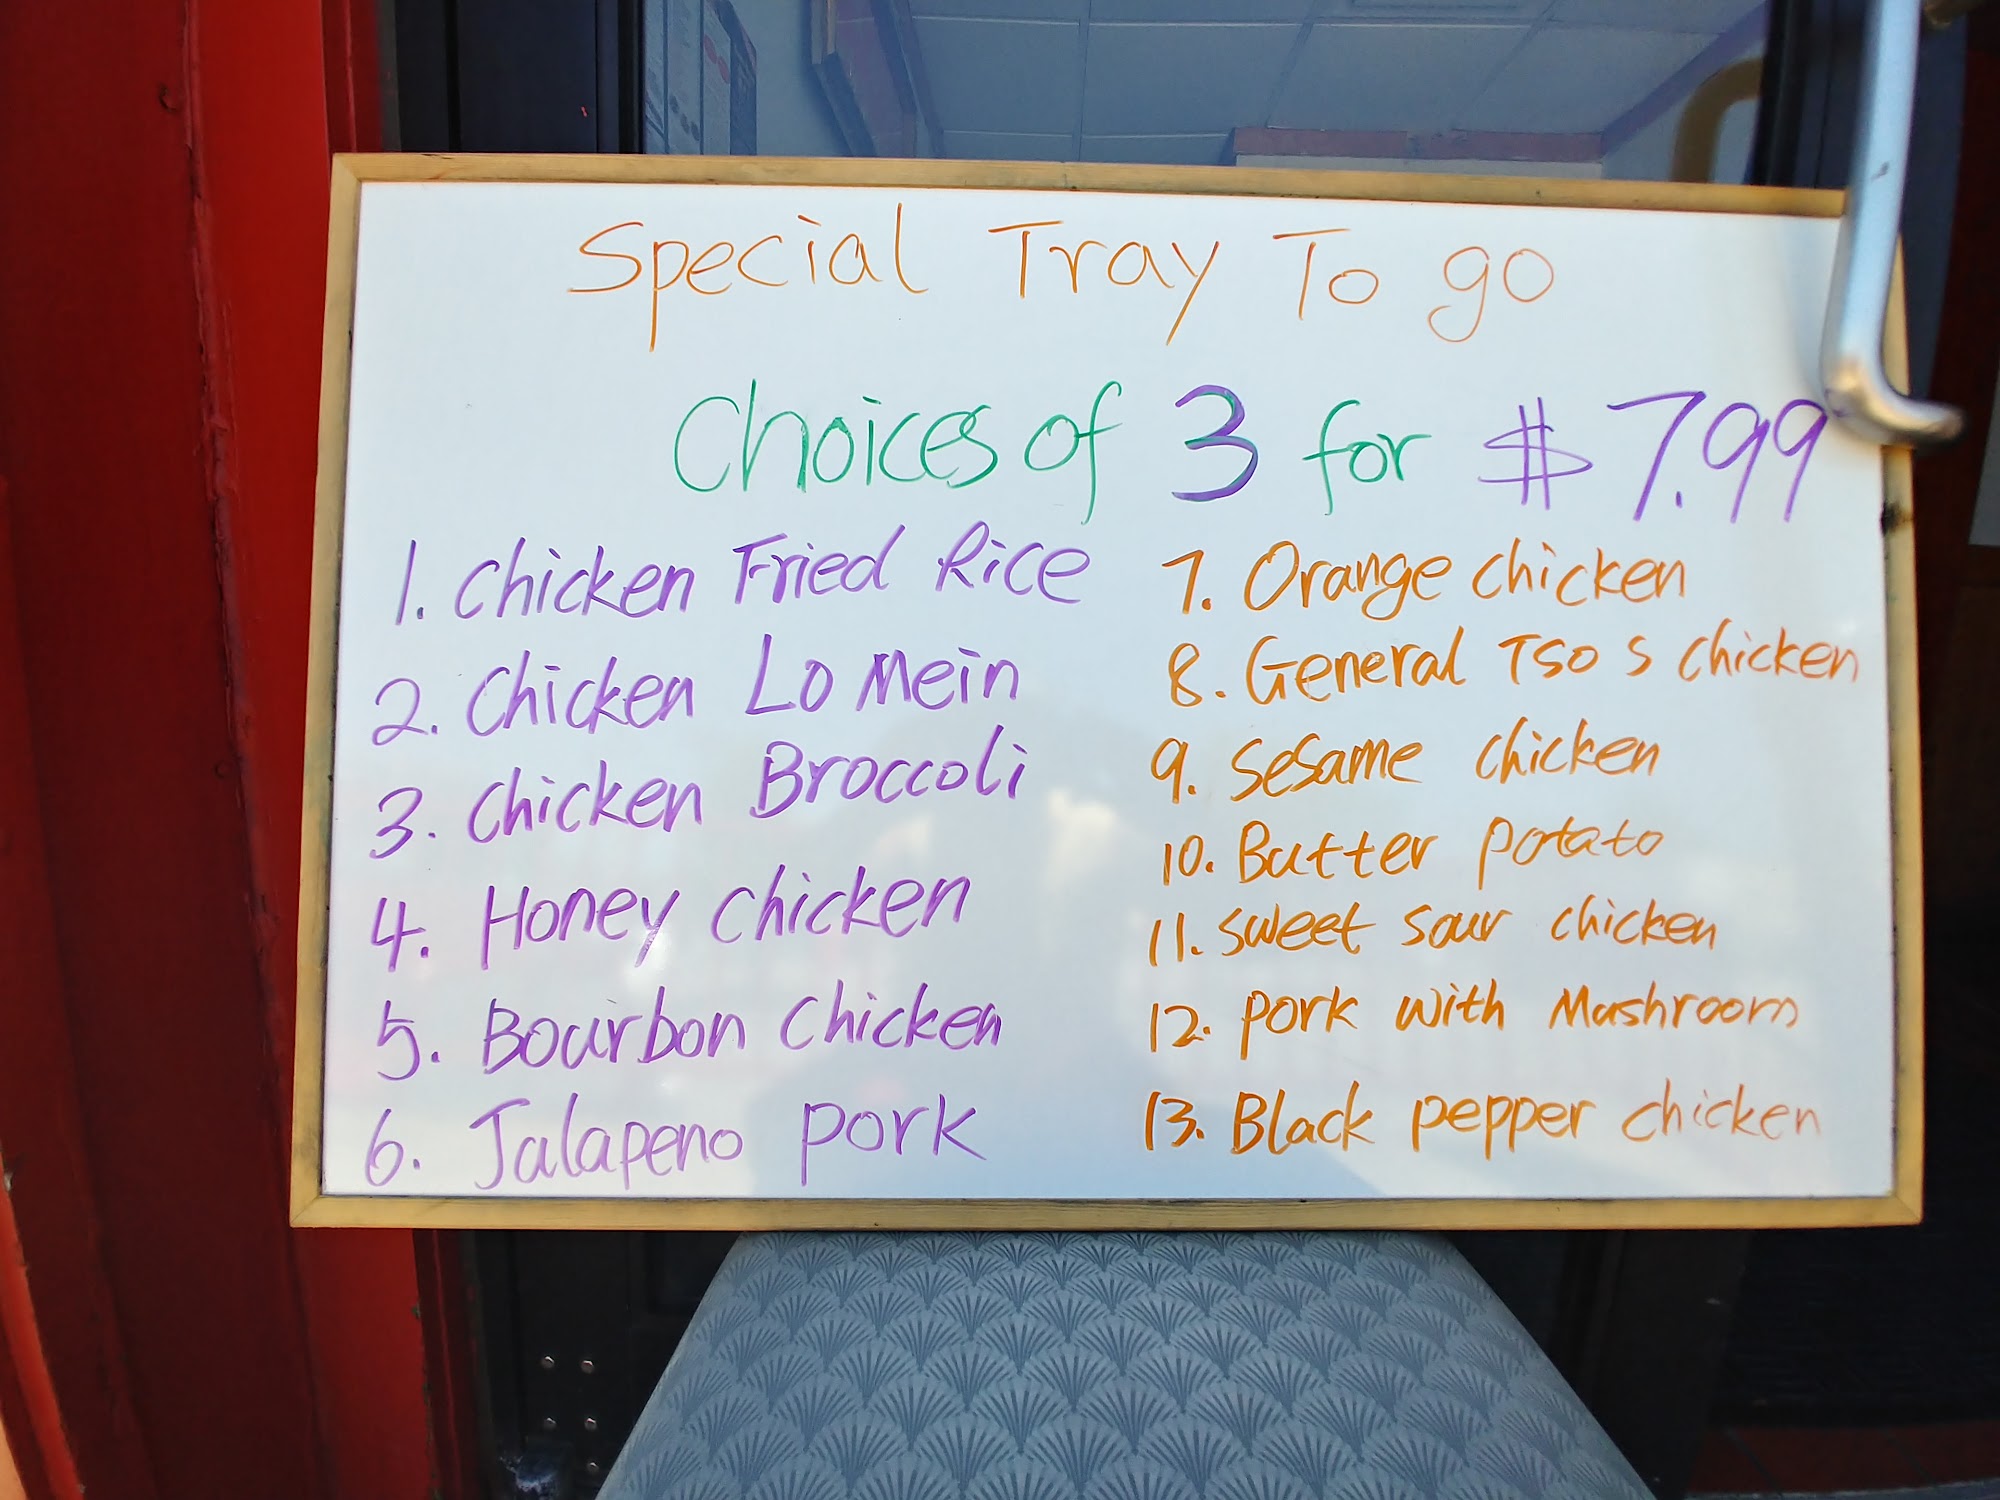 Special Tray To go
Choices of 3 for $7.99
1. Chicken Fried Rice
2. Chicken Lo Mein
3. Chicken Broccoli
4. Honey chicken
5. Bourbon Chicken
6. Jalapeno pork
7. Orange chicken
8. General Tso s chicken
9. Sesame chicken
10. Butter potato
11. sweet sour chicken
12. pork with Mushroom
13. Black pepper chicken